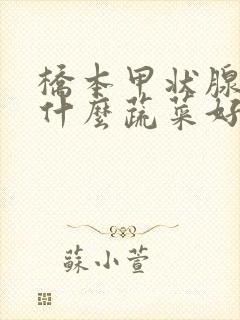 橋本甲状腺
什麼蔬菜好
蘇小萱